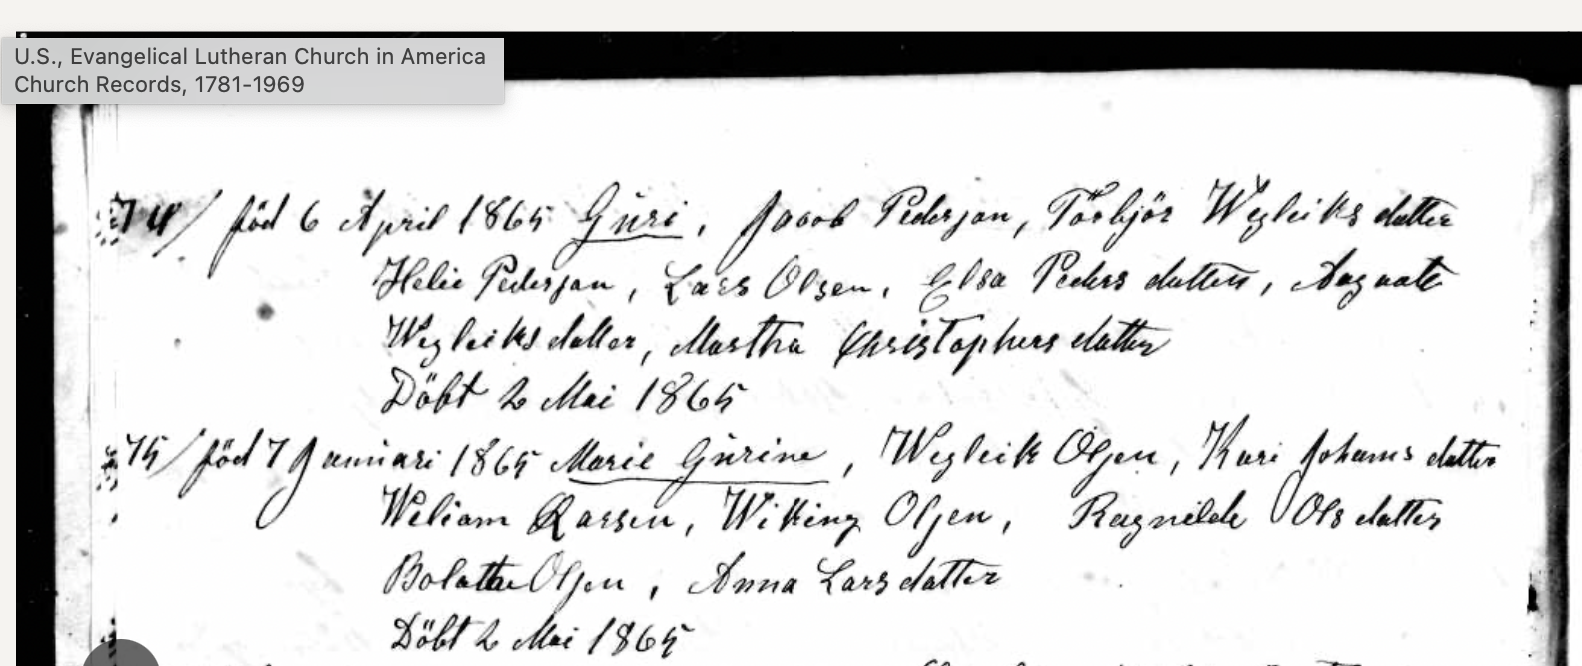 U.S., Evangelical Lutheran Church in America
Church Records, 1781-1969
74/ föd 6 April 1865 Gúri, Jacob Pedersan, Torbjör Wegleiks datter
Helie Pedersan, Lars Olsen, Elsa Peders datter, Aagaate
Wegleiks datter, Martha Christophers datter
Döbt 2 Mai 1865
75/ föd 7 Januari 1865 Marie Gúrine, Wegleik Olsen, Kari Johanns datter
Weliam Larsen, Wiking Olsen, Ragnilde Ols datter
Bolatta Olsen, Anna Lars datter
Döbt 2 Mai 1865